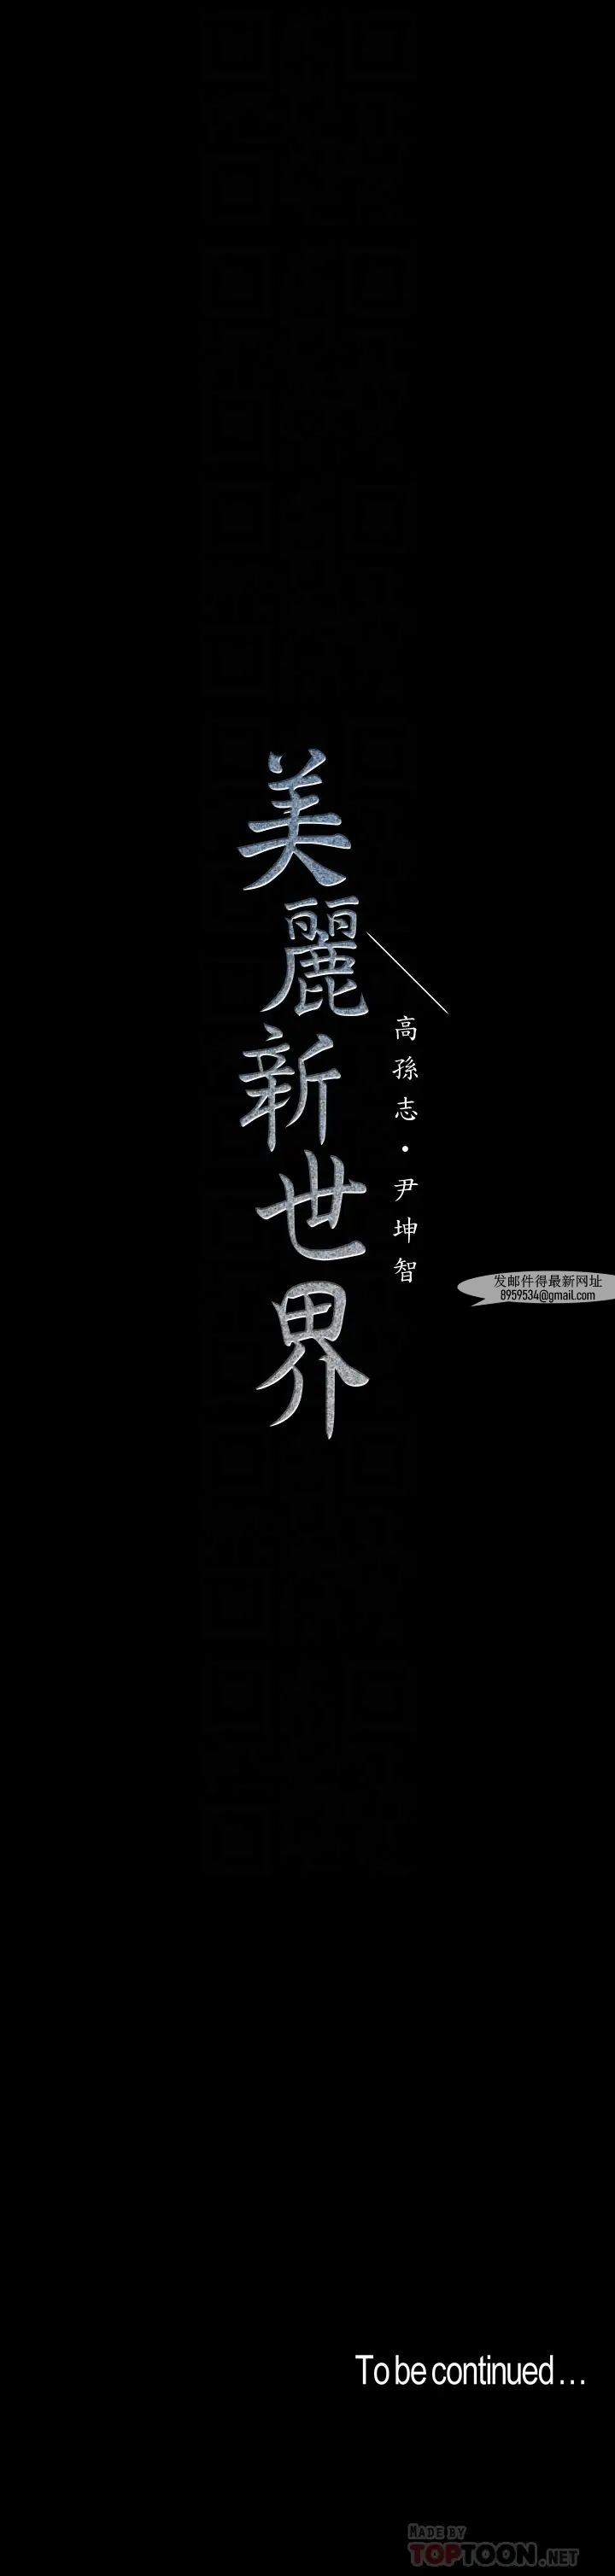 美麗新世界
高孫志・尹坤智
发邮件得最新网址
8959534@gmail.com
To be continued...
MADE BY
TOPTOON.NET